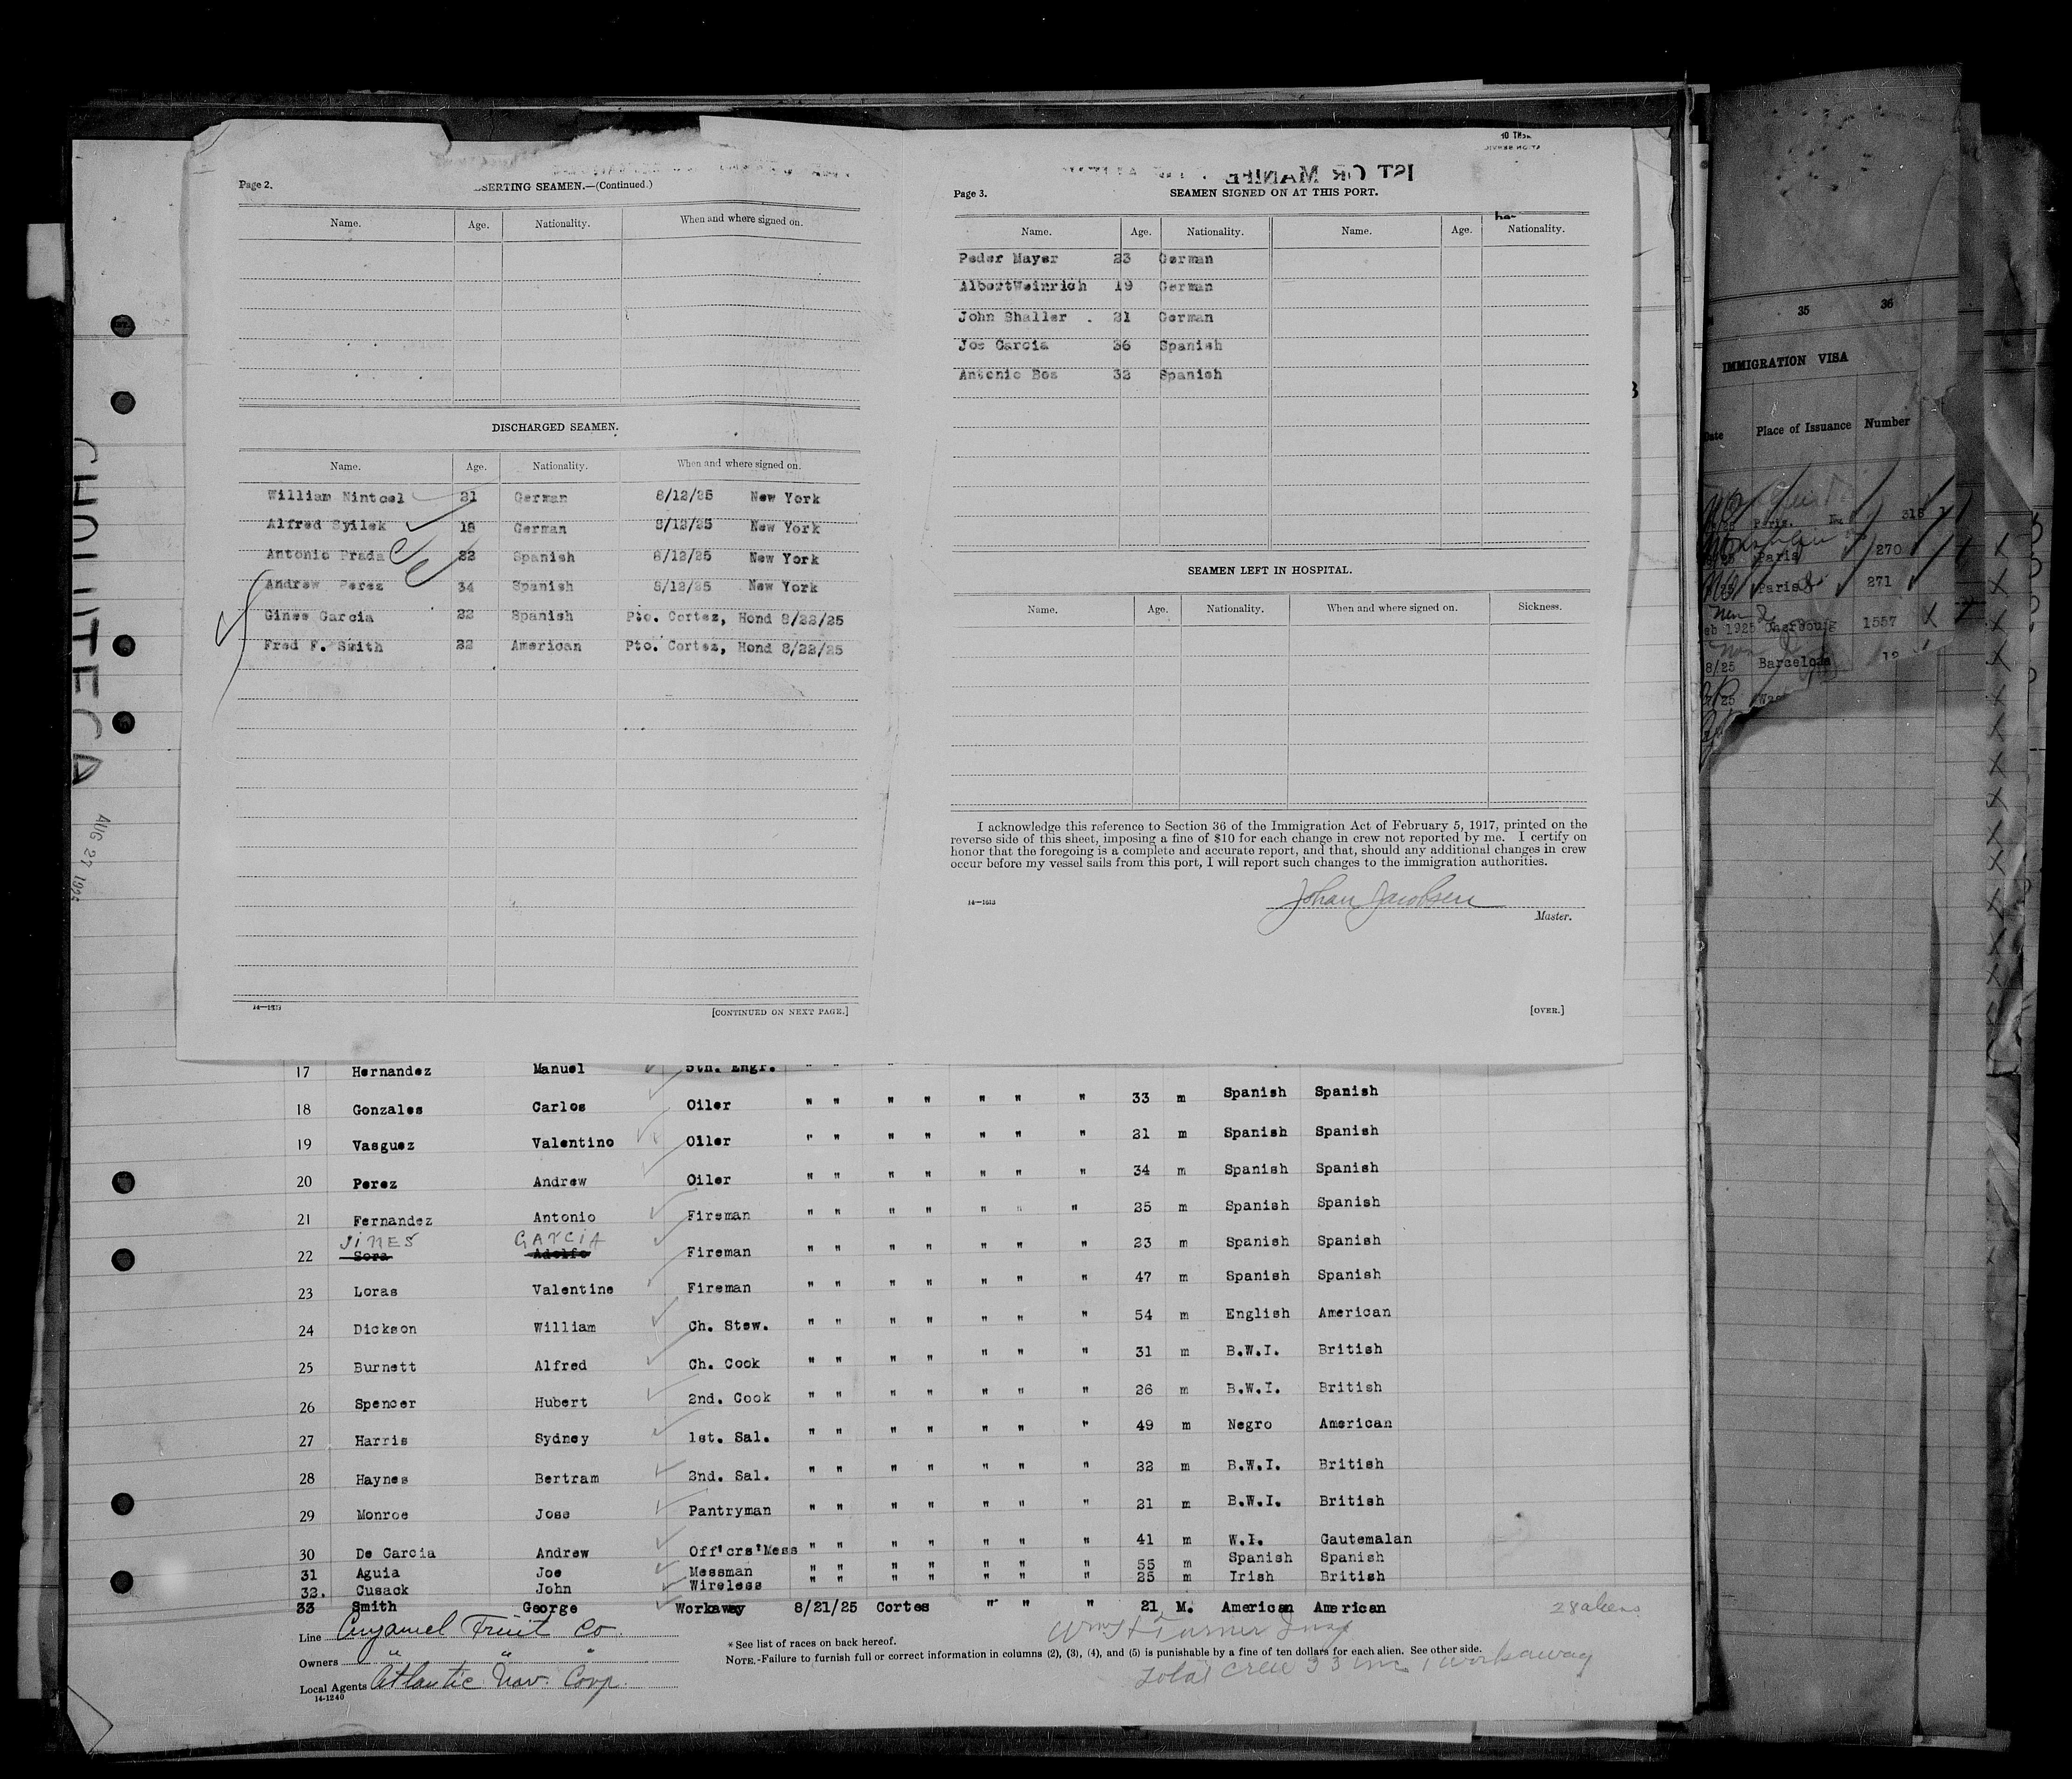 Page 2.
SERTING SEAMEN.—(Continued.)
Name. Age. Nationality. When and where signed on.
DISCHARGED SEAMEN.
Name. Age. Nationality. When and where signed on.
William Nintcel 21 German 8/12/25 New York
Alfred Syilek 18 German 8/12/25 New York
Antonio Prada 22 Spanish 8/12/25 New York
Andrew Perez 34 Spanish 8/12/25 New York
Gines Garcia 22 Spanish Pto. Cortez, Hond 8/22/25
Fred F. Smith 22 American Pto. Cortez, Hond 8/22/25
14—1513
[CONTINUED ON NEXT PAGE.]
Page 3.
SEAMEN SIGNED ON AT THIS PORT.
Name. Age. Nationality. Name. Age. Nationality.
Peder Mayer 23 German
AlbertWeinrich 19 German
John Shaller . 21 German
Joe Garcia 36 Spanish
Antonio Bos 32 Spanish
SEAMEN LEFT IN HOSPITAL.
Name. Age. Nationality. When and where signed on. Sickness.
I acknowledge this reference to Section 36 of the Immigration Act of February 5, 1917, printed on the
reverse side of this sheet, imposing a fine of $10 for each change in crew not reported by me. I certify on
honor that the foregoing is a complete and accurate report, and that, should any additional changes in crew
occur before my vessel sails from this port, I will report such changes to the immigration authorities.
Johan Jacobsen
14—1513
Master.
[OVER.]
CHOLUTECA
AUG 27 1925
17 Hernandez Manuel 5th. Engr.
18 Gonzales Carlos Oiler " " " " " " " 33 m Spanish Spanish
19 Vasguez Valentino Oiler " " " " " " " 21 m Spanish Spanish
20 Perez Andrew Oiler " " " " " " " 34 m Spanish Spanish
21 Fernandez Antonio Fireman " " " " " " " 25 m Spanish Spanish
JiNES GARCiA
22 Sora Adolfo Fireman " " " " " " " 23 m Spanish Spanish
23 Loras Valentine Fireman " " " " " " " 47 m Spanish Spanish
24 Dickson William Ch. Stew. " " " " " " " 54 m English American
25 Burnett Alfred Ch. Cook " " " " " " " 31 m B.W.I. British
26 Spencer Hubert 2nd. Cook " " " " " " " 26 m B.W.I. British
27 Harris Sydney 1st. Sal. " " " " " " " 49 m Negro American
28 Haynes Bertram 2nd. Sal. " " " " " " " 22 m B.W.I. British
29 Monroe Jose Pantryman " " " " " " " 21 m B.W.I. British
30 De Garcia Andrew Off'crs'Mess " " " " " " " 41 m W.I. Gautemalan
31 Aguia Joe Messman " " " " " " " 55 m Spanish Spanish
32. Cusack John Wireless " " " " " " " 25 m Irish British
33 Smith George Workaway 8/21/25 Cortes " " " 21 M. American American
28 aliens
Line Cuyamel Fruit Co.
Owners " " "
Local Agents Atlantic Nav. Corp.
14-1240
* See list of races on back hereof.
NOTE.-Failure to furnish full or correct information in columns (2), (3), (4), and (5) is punishable by a fine of ten dollars for each alien. See other side.
Wm H Turner Insp
Total crew 33 inc 1 workaway
35 36
IMMIGRATION VISA
Date Place of Issuance Number
Paris. 318
Paris 270
Paris 271
eb 1925 Cherbourg 1557
8/25 Barcelona 12